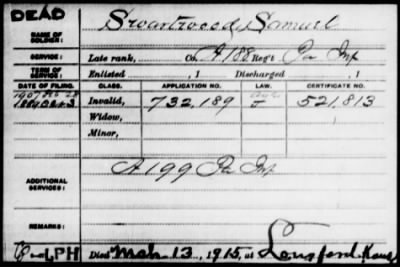 DEAD
NAME OF SOLDIER: Swartwood, Samuel
SERVICE: Late rank, Co. A 188 Reg't Pa Inf
TERM OF SERVICE: Enlisted , 1 Discharged , 1
DATE OF FILING. CLASS. APPLICATION NO. LAW. CERTIFICATE NO.
1889 Oct 3 Invalid, 732,189 521,813
Widow,
Minor,
ADDITIONAL SERVICES: A 199 Pa Inf
REMARKS:
LPH Died Mch 13, 1915, at Lansford